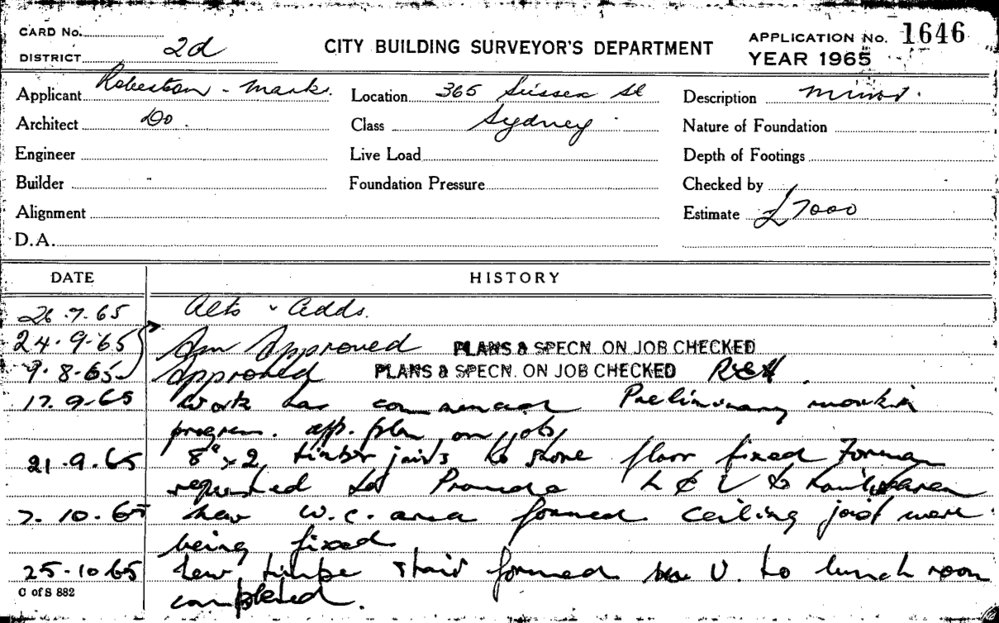 CARD No.
DISTRICT 2d
CITY BUILDING SURVEYOR'S DEPARTMENT
APPLICATION No. 1646
YEAR 1965
Applicant Robertson - Marks. Location 365 Sussex St Description minor.
Architect Do. Class Sydney Nature of Foundation
Engineer Live Load Depth of Footings
Builder Foundation Pressure Checked by
Alignment Estimate £7000
D.A.
DATE HISTORY
26.7.65 Alts & Adds.
24.9.65 Am Approved PLANS & SPECN. ON JOB CHECKED
9.8.65 Approved PLANS & SPECN. ON JOB CHECKED
17.9.65 Work has commenced Preliminary work in
progress. app. plan on job
21.9.65 8" x 2" timber joists to store floor fixed Forman
requested to Provide L & V to
7.10.65 New W.C. area formed ceiling joist were
being fixed
25.10.65 New timber stair formed U. to lunch room
completed.
C of S 882